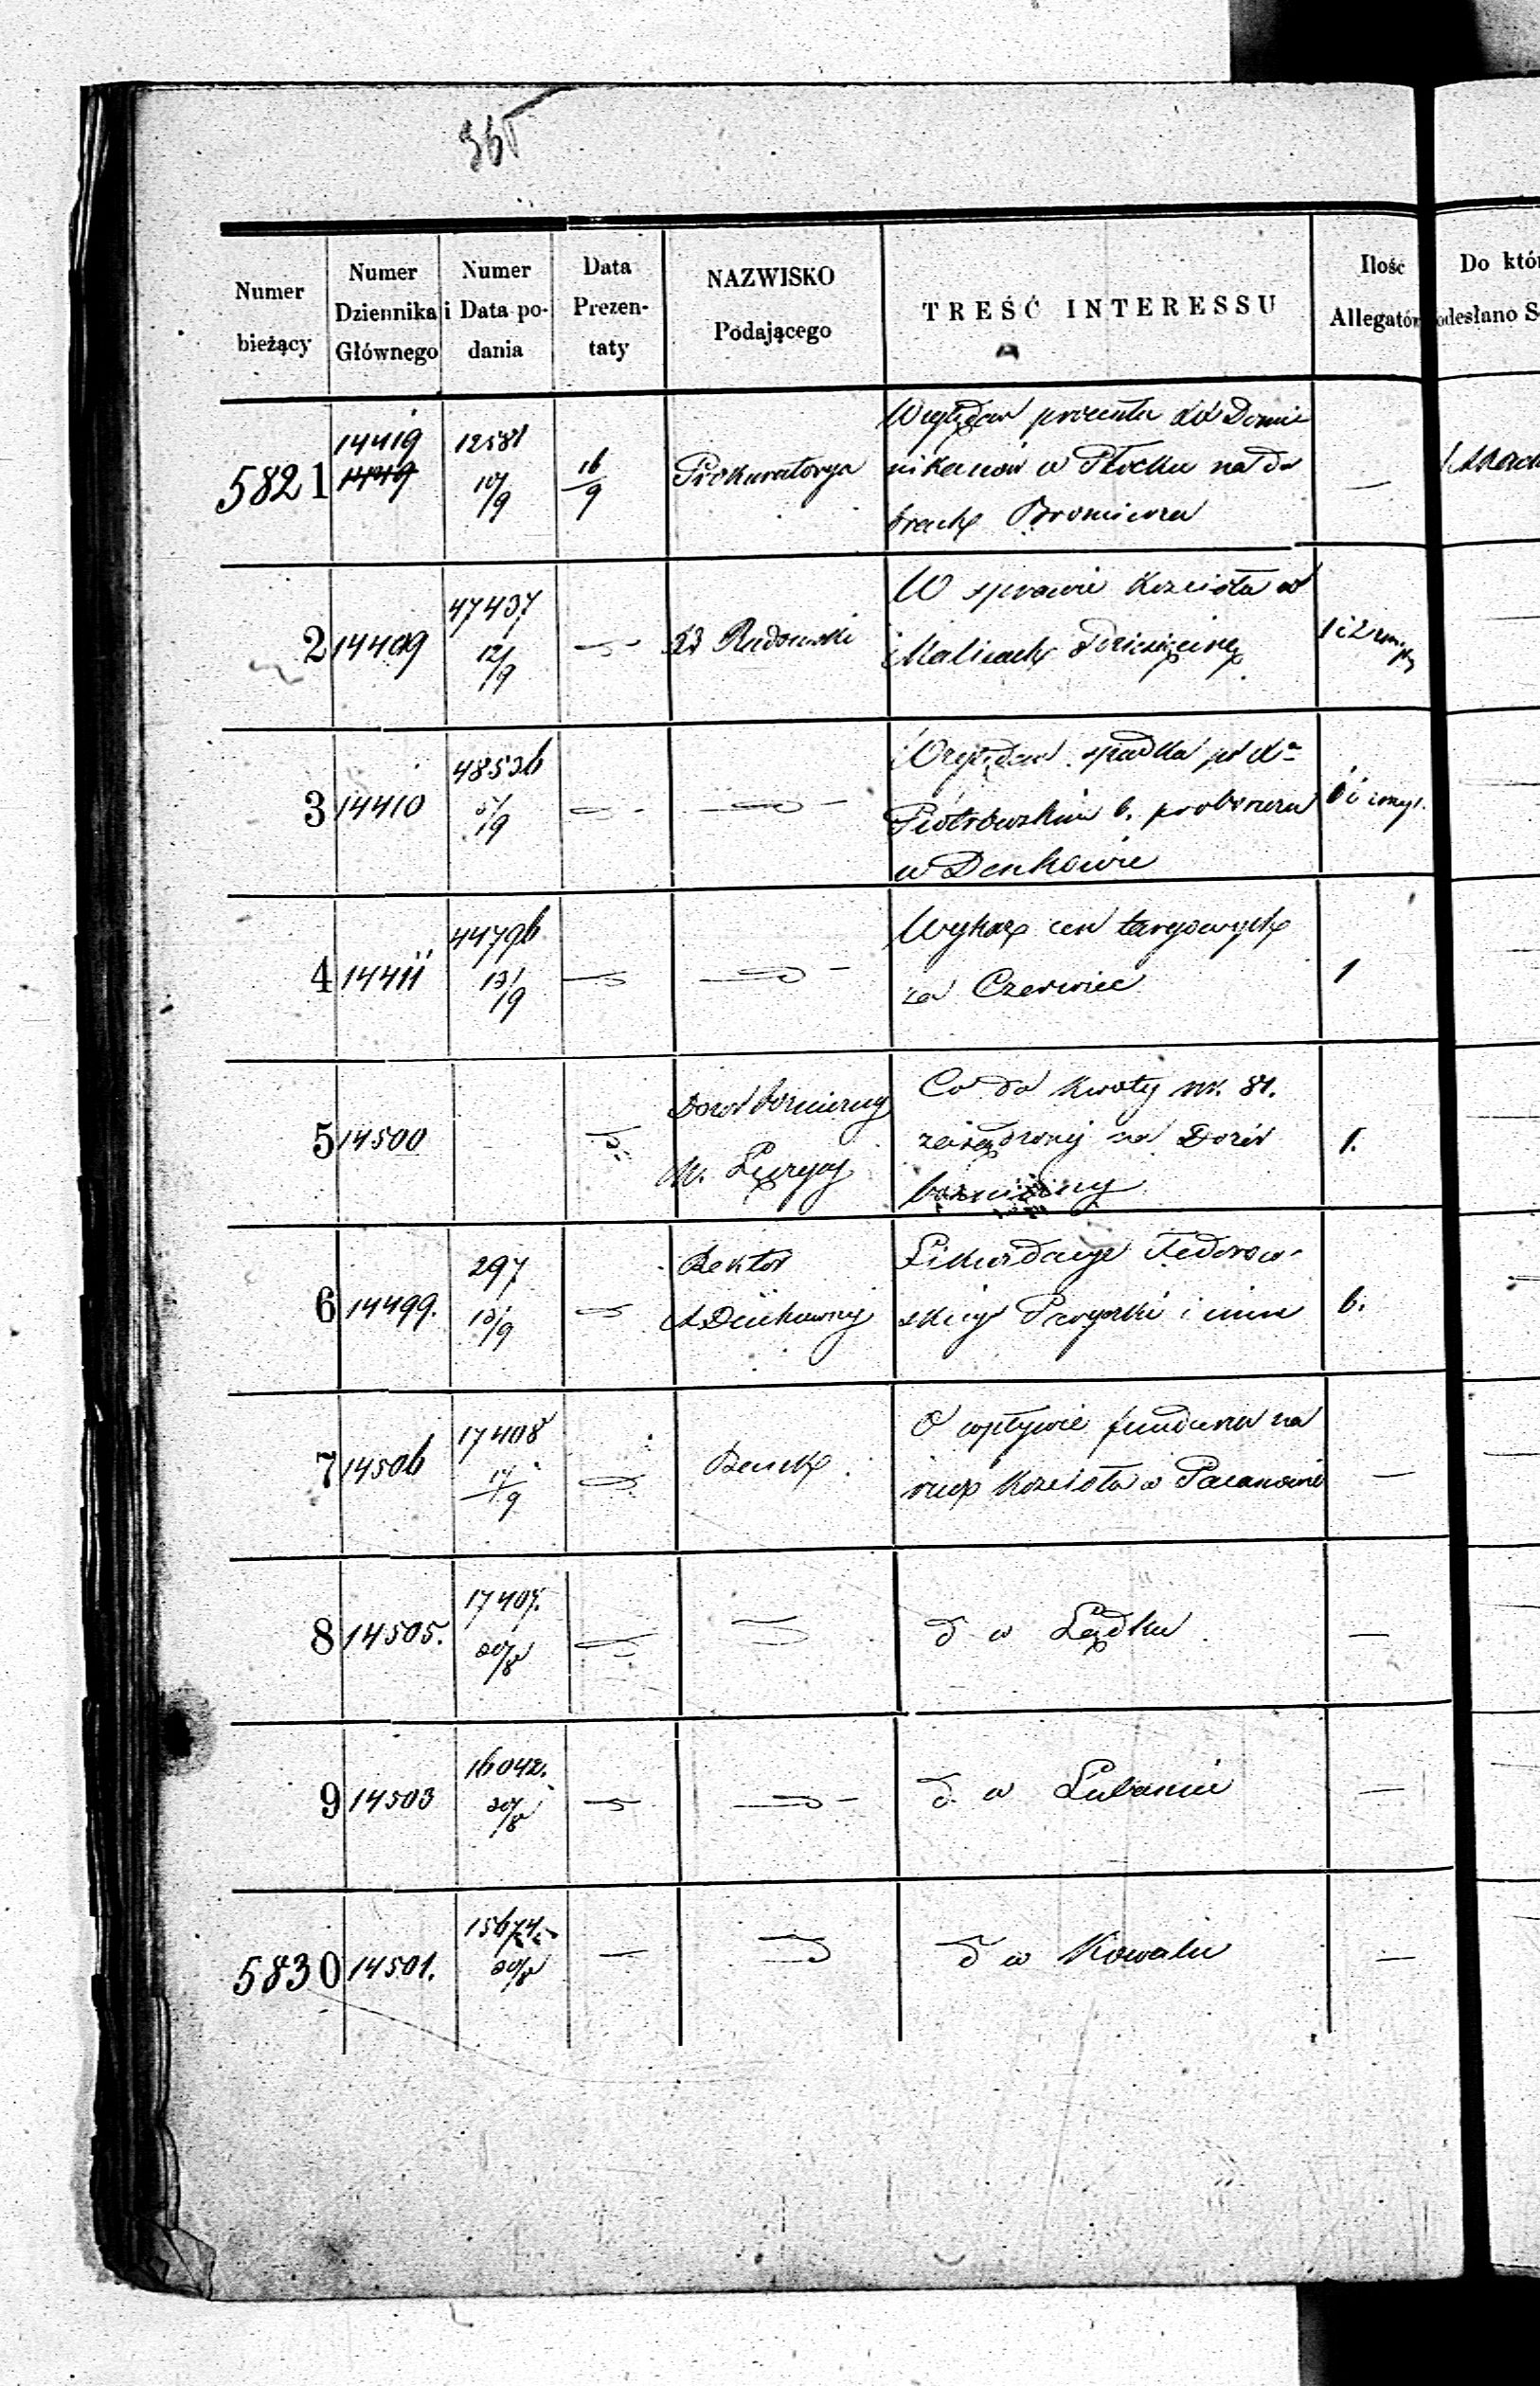 365
Numer bieżący
Numer Dziennika Głównego
Numer i Data podania
Data Prezentaty
NAZWISKO Podającego
TREŚĆ INTERESSU
Ilość Allegatów
Do któ
odesłano S
5821 14419 12581 10/9 16/9 Prokuratorya
14419
Względem procentu dla Domi
nikanów w Płocku na do
brach Bromierza —
2 14409 47437 12/9 Radomski
W sprawie Kościoła w
Malicach 1 i 2
3 14410 48536 5/9
Względem spadku po
Piotrowskim b. proboszczu
w Denkowie
4 14411 44796 13/9
Wykaz cen targowych
za Czerwiec 1
5 14500 Dozór bożniczny
Co do kwoty 81.
na Dozór
1.
6 14499. 297 13/9 Rektor
A Duchownej
Likwidacye Fedorow-
skiego i inne 6.
7 14506 17408 17/9 Bank
O wpływie funduszu na
rzecz Kościoła w Pacanowie —
8 14505. 17407. 20/8
d w Lądku —
9 14503 16042. 20/8
d. w Lubaniu —
5830 14501. 15674. 20/8
d w Kowalu —